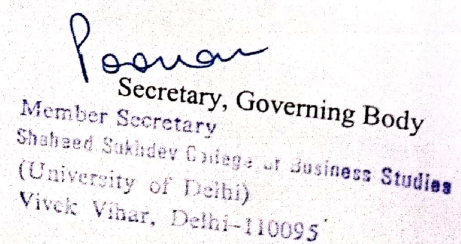 Poonam
Secretary, Governing Body
Member Secretary
Shaheed Sukhdev College of Business Studies
(University of Delhi)
Vivek Vihar, Delhi-110095